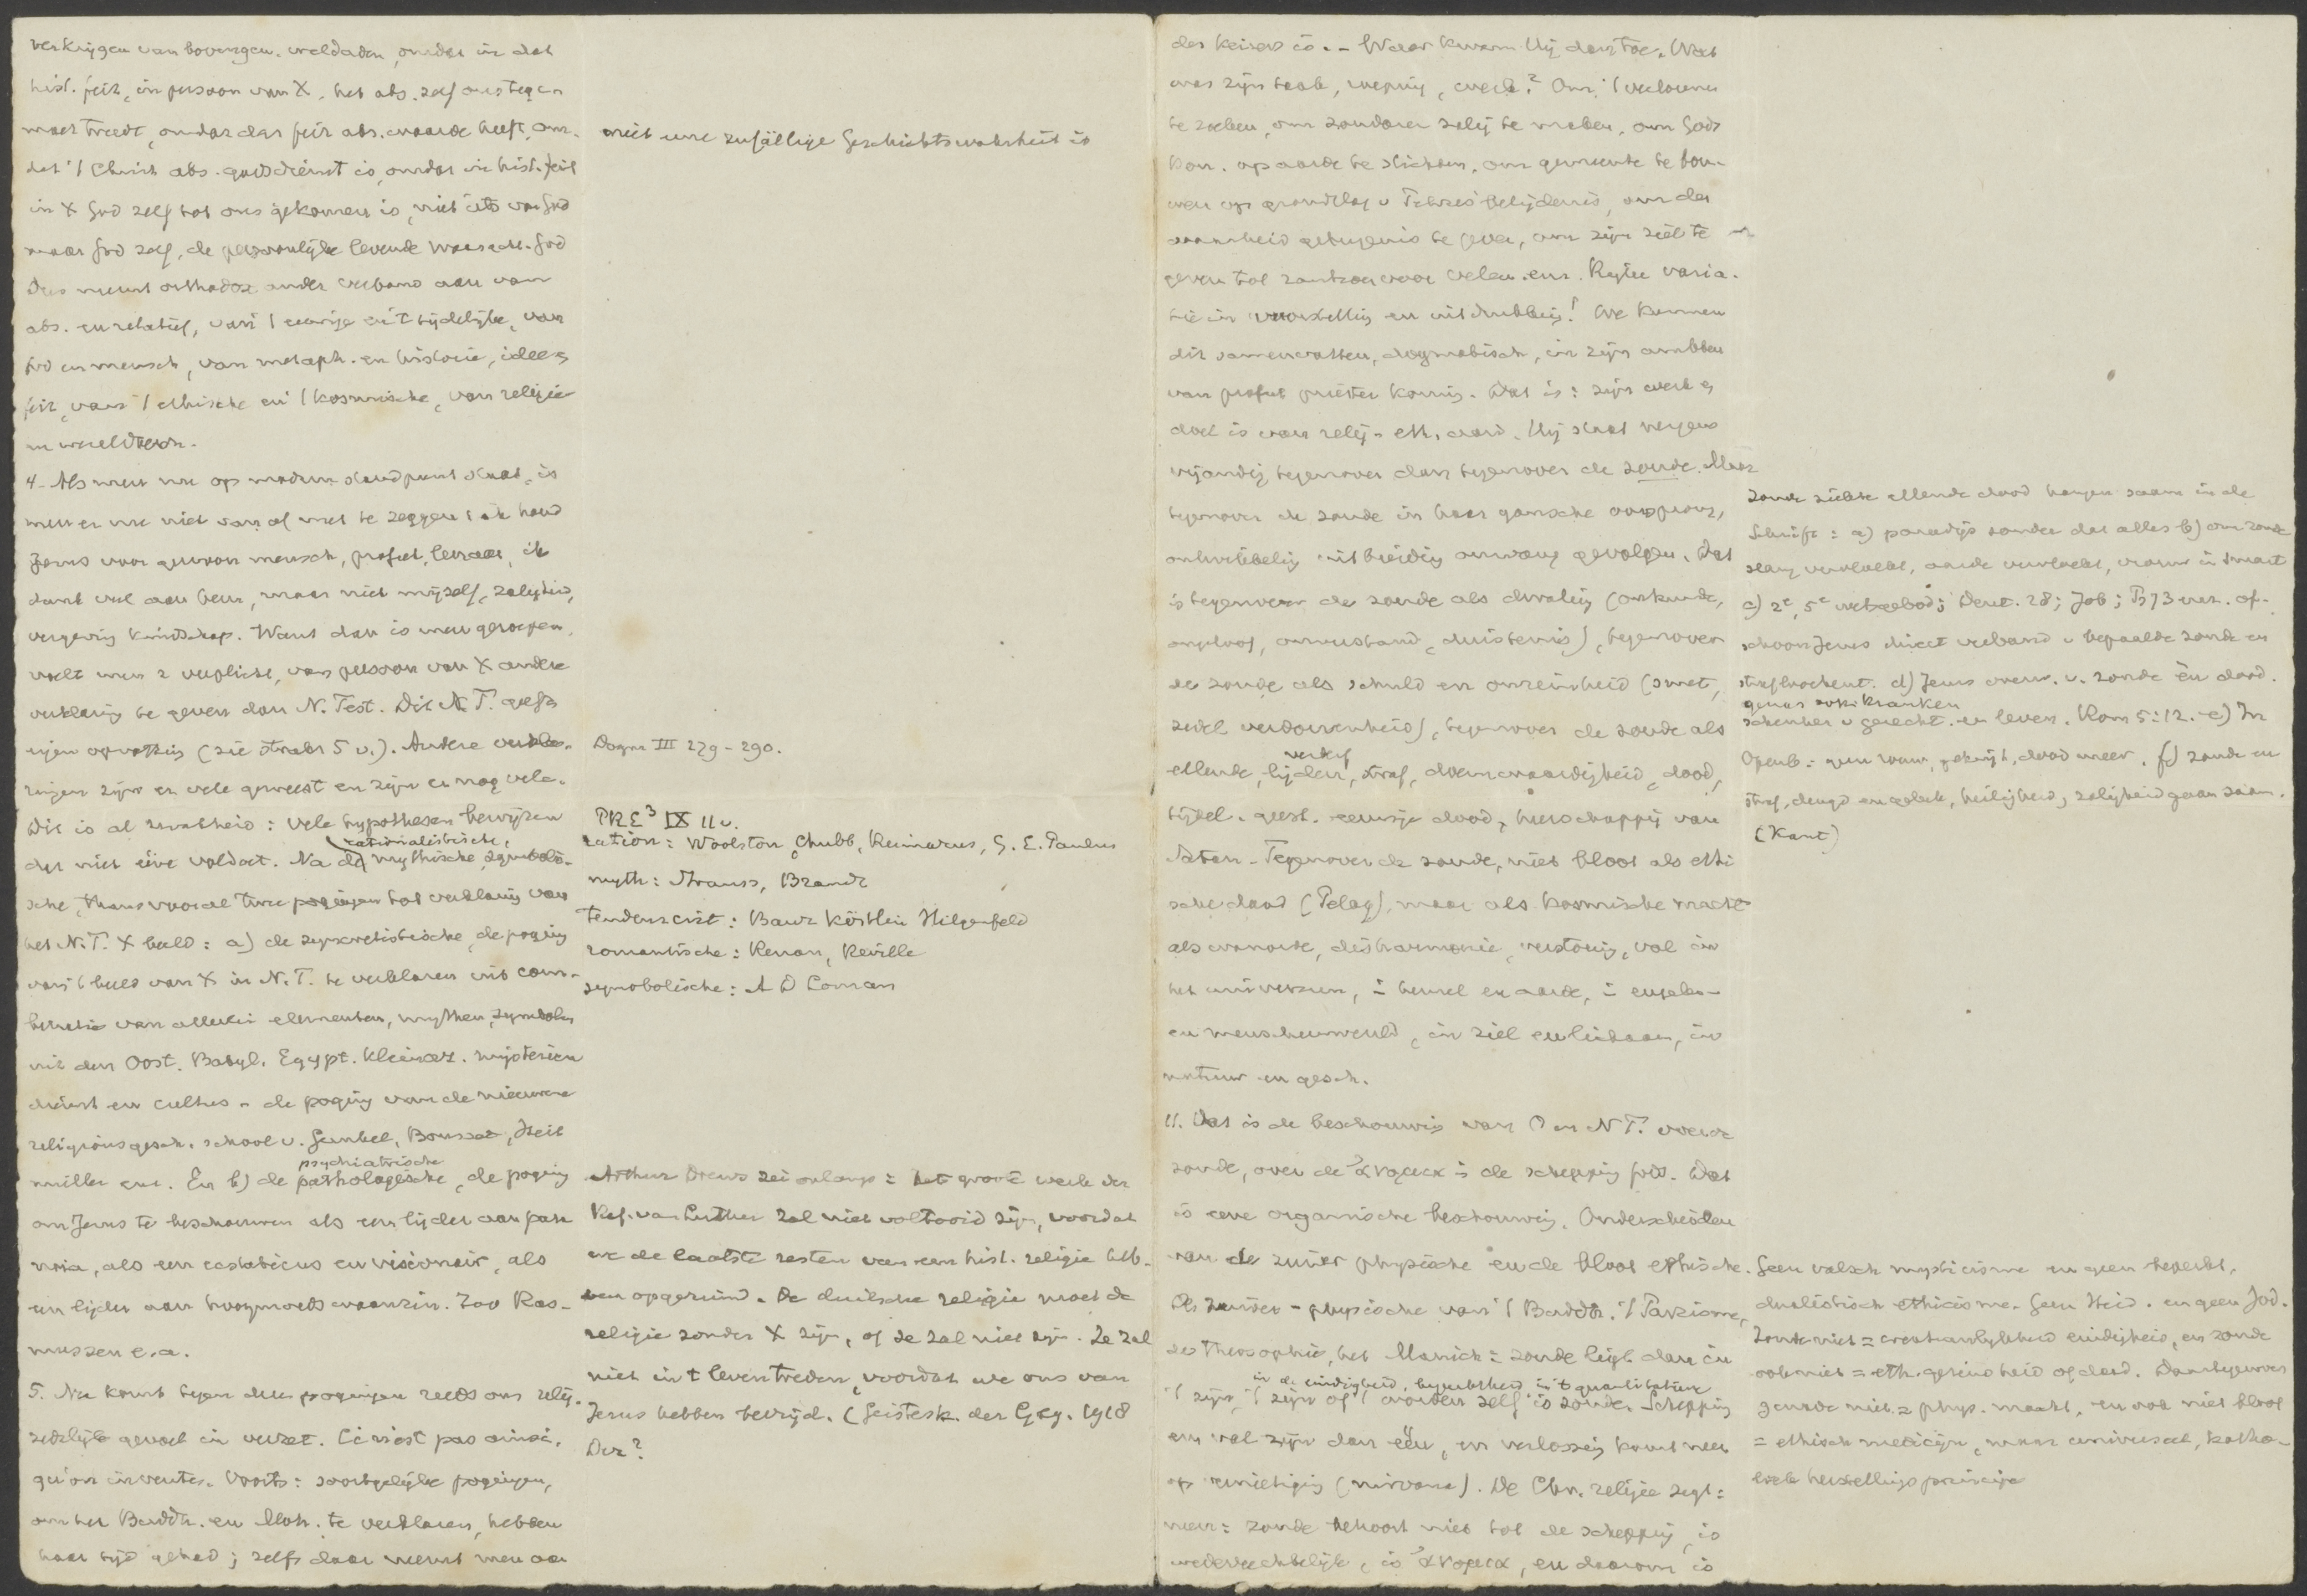 verkrijgen van bovengen. weldaden, omdat in dat
hist. feit, in persoon van X, het abs. zelf ons tegen
moet treedt, omdat dat feit abs. waarde heeft, om-
dat 't Christ. abs. godsdienst is, omdat in hist. feit
in X God zelf tot ons gekomen is, niet iets van God
maar God zelf, de persoonlijke levende God
Dus neemt orthodox ander verband aan van
abs. en relatief, van 't eeuwige en 't tijdelijke, van
God en mensch, van metaph. en historie, idee en
feit, van 't ethische en 't kosmische, van religie
en wereld
4. Als men nu op modern standpunt staat, is
men er nu niet van af met te zeggen: ik houd
Jezus voor gewoon mensch, profeet, leeraar, ik
dank veel aan hem, maar niet mijzelf, zaligheid,
vergeving kindschap. Want dan is men geroepen,
voelt men z. verplicht, van persoon van X andere
verklaring te geven dan N. Test. Dit N.T. geeft
eigen opvatting (zie straks 5 v.). Andere verkla-
ringen zijn er vele geweest en zijn er nog vele.
Dit is al zwakheid: vele hypothesen bewijzen
dat niet eene voldoet. Na de rationalistische, mythische, symboli-
sche, thans vooral twee pogingen tot verklaring van
het N.T. X beeld: a) de syncretistische, de poging
van 't beeld van X in N.T. te verklaren uit com-
binatie van allerlei elementen, mythen, symbolen
uit den Oost. Babyl. Egypt. Kleinaz. mysterien
dienst en cultus - de poging van de nieuwere
religionsgesch. school v. Gunkel, Bousset, Heit
muller enz. En b) de pathologische, psychiatrische, de poging
om Jezus te beschouwen als een lijder aan para
noia, als een ecstaticus en visionair, als
een lijder aan hoogmoedswaanzin. Zoo Ras-
mussen e.a.
5. Nu komt tegen deze pogingen reeds ons relig.
zedelijk gevoel in verzet. Ce n'est pas ainsi,
qu'on invente. Voorts: soortgelijke pogingen,
om het Buddh. en Moh. te verklaren, hebben
haar tijd gehad; zelfs daar neemt men aan
niet eine zufällige Geschichtswahrheit is
Dogm III 279-290.
PRE³ IX 11 v.
ration: Woolston, Chubb, Reimarus, G. E. Paulus
myth: Strauss, Brandt
Tendenzcrit: Baur Köstlin Hilgenfeld
romantische: Renan, Reville
symbolische: A D Loman
Arthur Drews zei onlangs: het groote werk der
Ref. van Luther zal niet voltooid zijn, voordat
we de laatste resten van een hist. religie heb-
ben opgeruimd. De duitsche religie moet de
religie zonder X zijn, of ze zal niet zijn. Ze zal
niet in 't leven treden, voordat we ons van
Jezus hebben bevrijd. (Geistesk. der Geg. 1918
Dez?
des keizers is. - Waar kwam Hij dan toe. Wat
was zijn taak, roeping, werk? Om 't verlorene
te zoeken, om zondaren zalig te maken, om Gods
Kon. op aarde te stichten, om gemeente te bou-
wen op grondslag v Petrus' belijdenis, om der
waarheid getuigenis te geven, om zijn ziel te
geven tot rantsoen voor velen. enz. Rijke varia-
tie in voorstelling en uitdrukking! We kunnen
dit samenvatten, dogmatisch, in zijn ambten
van profeet priester koning. Dat is: zijn werk en
doel is van relig.-eth. aard. Hij staat nergens
vijandig tegenover dan tegenover de zonde. Maar
tegenover de zonde in haar gansche oorsprong,
ontwikkeling uitbreiding omvang gevolgen. Dat
is tegenover de zonde als dwaling (onkunde,
ongeloof, onverstand, duisternis), tegenover
de zonde als schuld en onreinheid (smet,
verdorvenheid), tegenover de zonde als
ellende, lijden, verderf, straf, doemwaardigheid, dood,
tijdel. geest. eeuwige dood, heerschappij van
Satan - Tegenover de zonde, niet bloot als ethi
sche daad (Pelag), maar als kosmische macht
als wanorde, disharmonie, verstoring, val in
het universum, in hemel en aarde, in engelen-
en menschenwereld, in ziel en lichaam, in
natuur en gesch.
11. Dat is de beschouwing van O en N T. over de
zonde, over de ἀνομια in de schepping Gods. Dat
is eene organische beschouwing. Onderscheiden
van de zuiver physische en de bloot ethische.
De zuiver-physische van 't Buddh. 't Parzisme,
de theosophie, het Manich: zonde ligt dan in
in de eindigheid, beperktheid, in 't quantitatieve
't zijn, 't zijn of 't worden zelf is zonde. Schepping
en val zijn dan één, en verlossing komt neer
op vernietiging (nirvana). De Chr. religie zegt:
neen: zonde behoort niet tot de schepping, is
wederrechtelijk, is ἀνομια, en daarom is
zonde ziekte ellende dood hangen saam in de
Schrift: a) paradijs zonder dat alles b) om zonde
slang vervloekt, aarde vervloekt, vrouw in smart
c) 2e, 5e gebod; Deut. 28; Job; Ps 73 enz. of-
schoon Jezus direct verband v bepaalde zonde en
straf ontkent. d) Jezus overw. v. zonde en dood.
genas ook kranken
schenker v gerecht. en leven. Rom 5:12. e) In
Openb: geen rouw, gekrijt, dood meer. f) zonde en
straf, deugd en geluk, heiligheid, zaligheid gaan saam.
(Kant)
Geen valsch mysticisme en geen beperkt,
dualistisch ethicisme. Geen Heid. en geen Jod.
Zonde niet = creatuurlijkheid eindigheid, en zonde
ook niet = eth. gezindheid of daad. Daartegenover
genade niet = phys. macht, en ook niet bloot
= ethisch medicijn, maar universeel, katho-
liek herstellingsprincipe